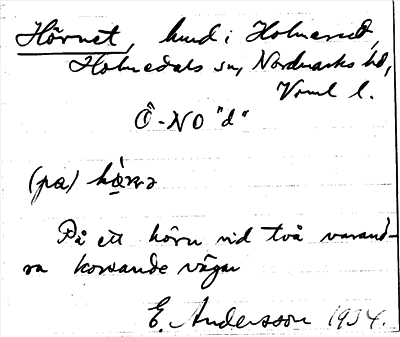 Hörnet, hmd i Holmerud,
Holmedals sn, Nordmarks hd,
Vrml l.
Ö-NO "d"
(pa) hœ̀ṇə
På ett hörn vid två varand-
ra korsande vägar
E. Andersson 1934.